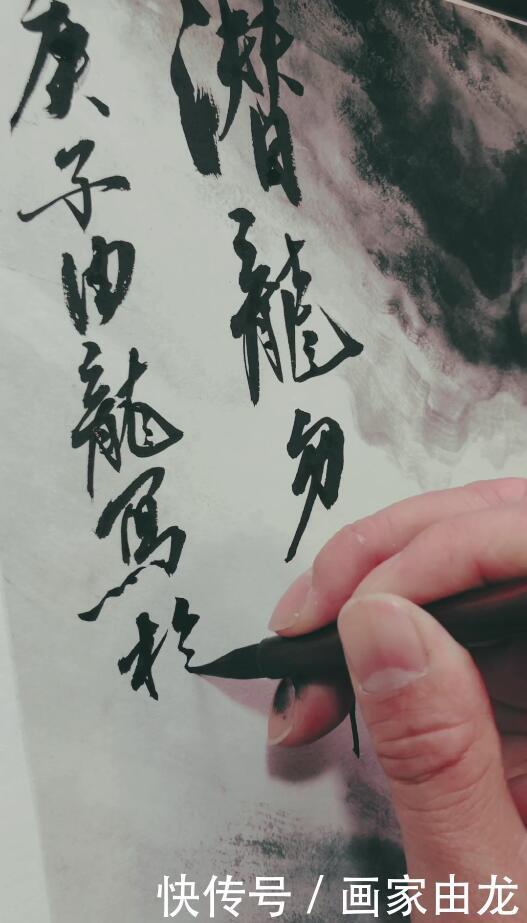 潜龍勿
庚子由龍寫於
快传号 / 画家由龙